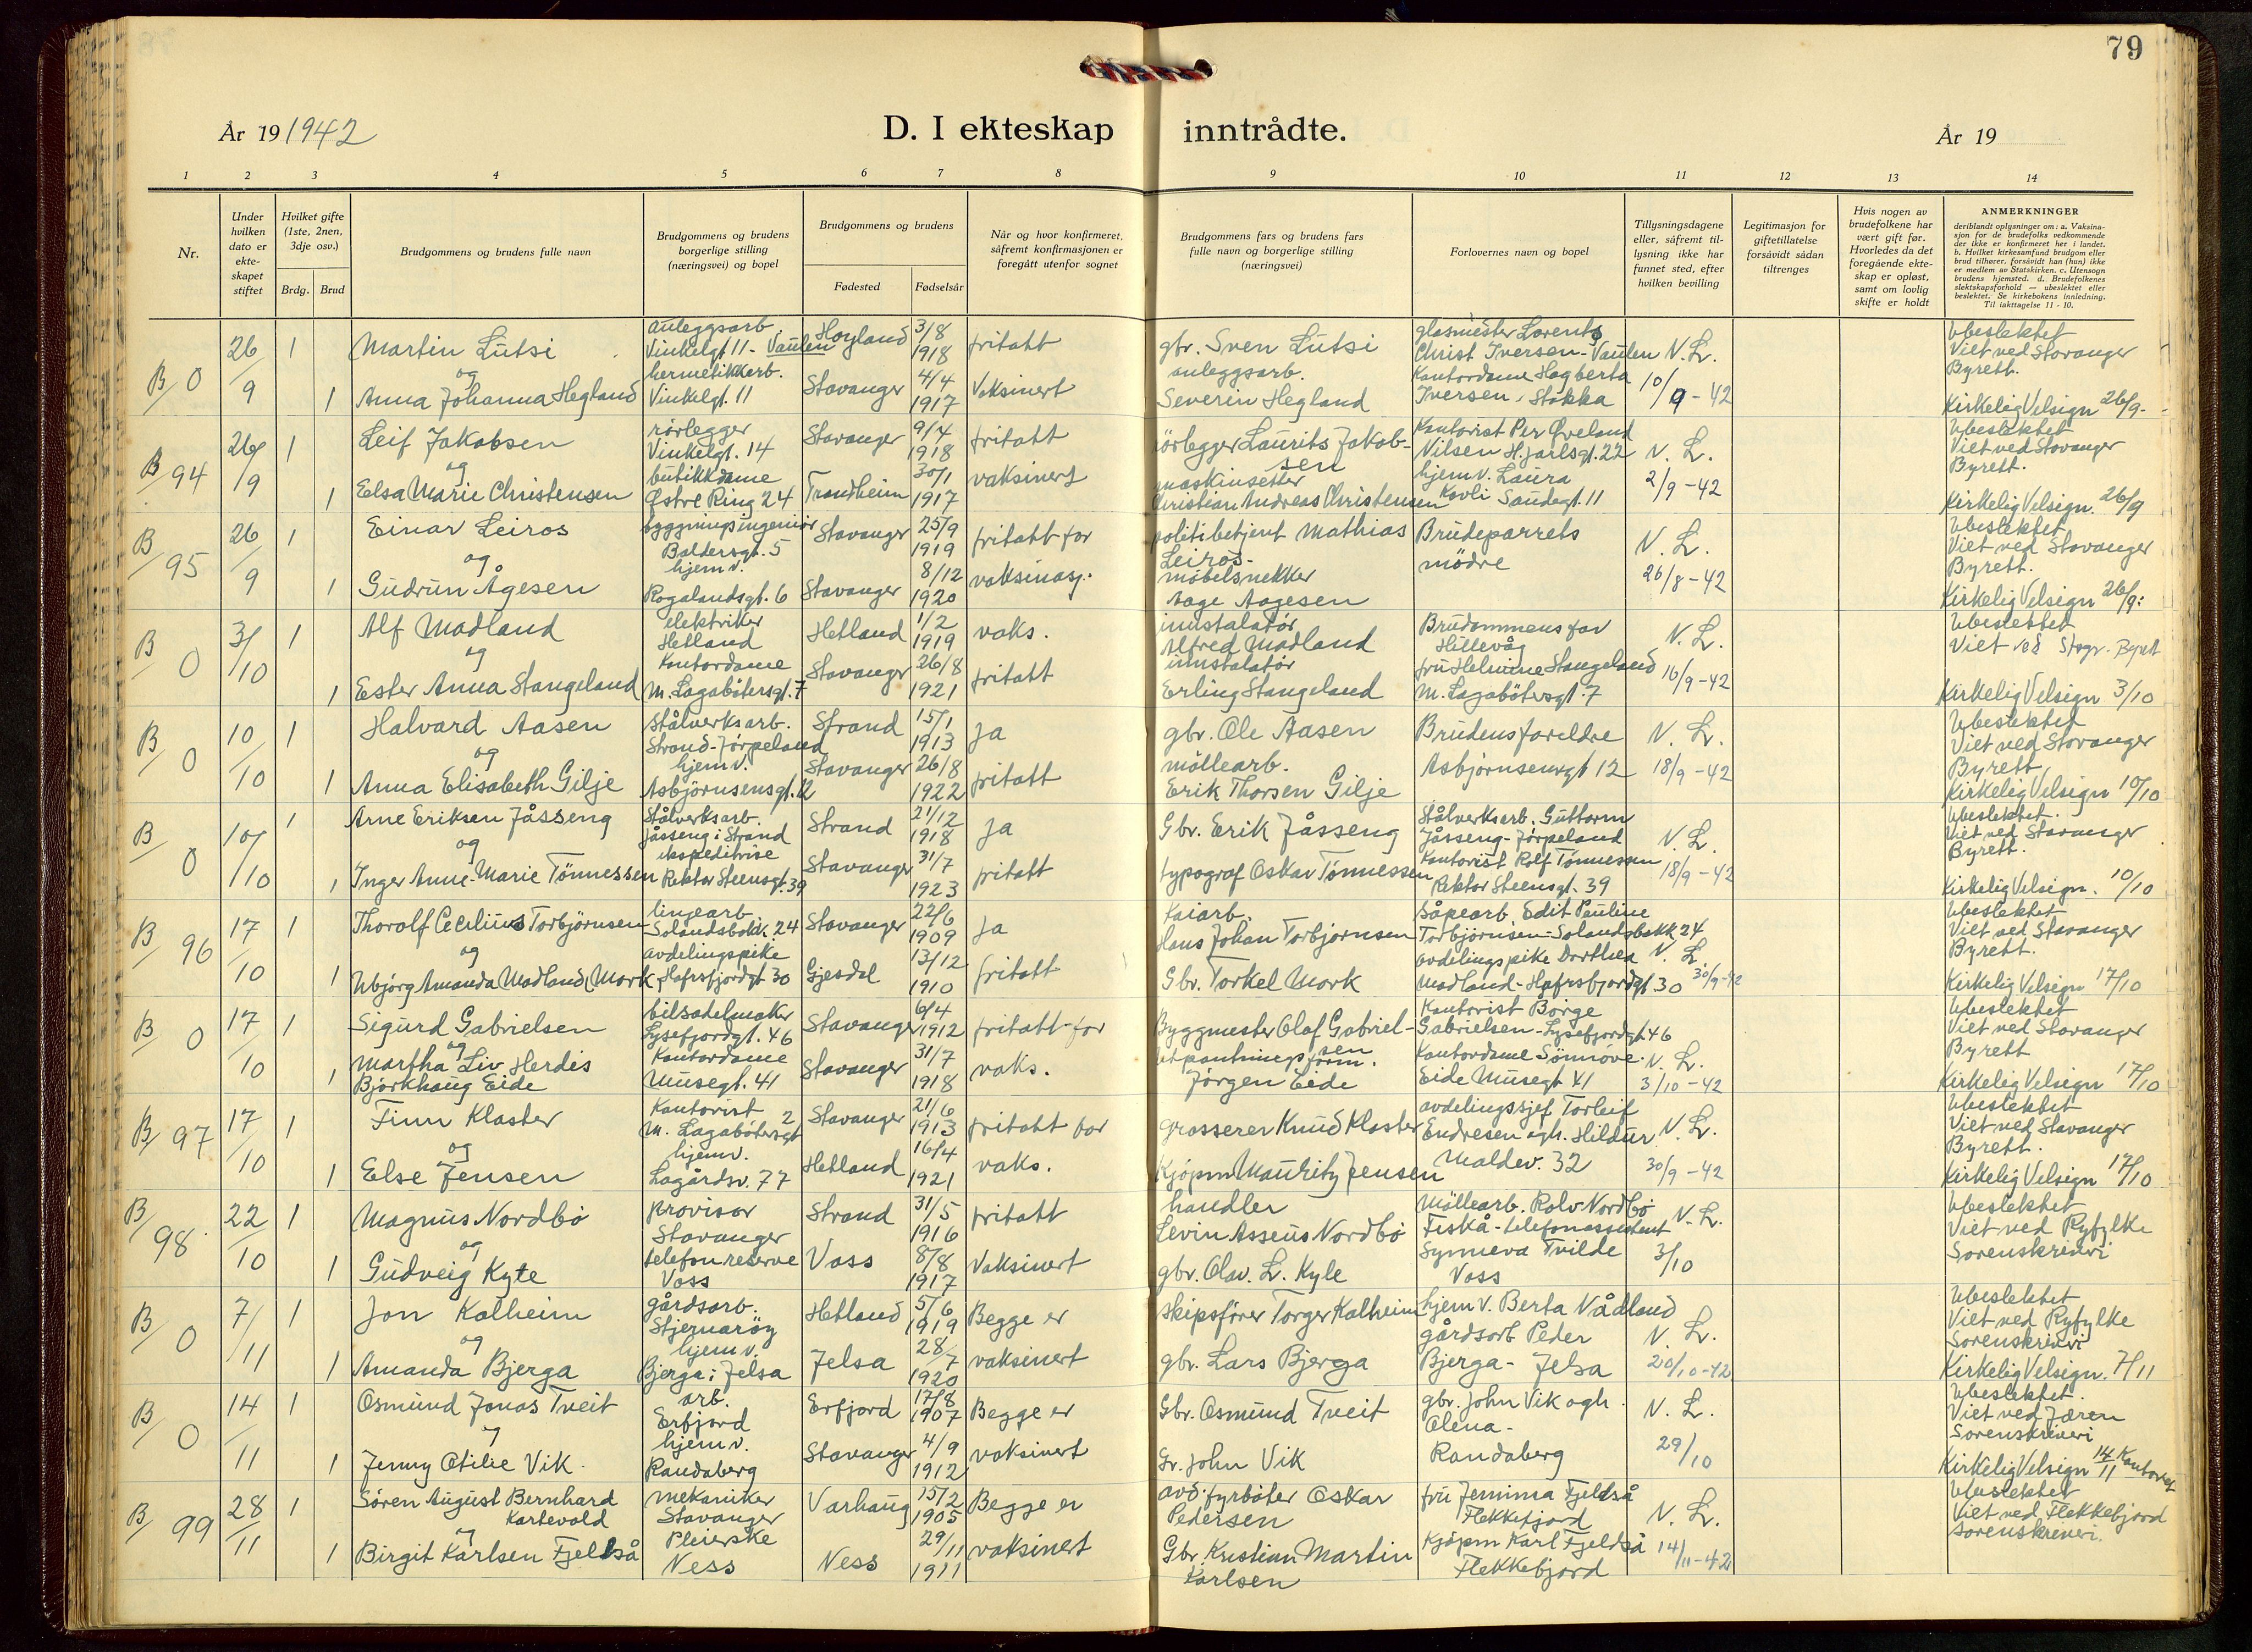 79
År 19 1942
D. I ekteskap inntrådte.
År 19
1 2 3 4 5 6 7 8 9 10 11 12 13 14
Nr.
Under hvilken dato er ekte-skapet stiftet
Hvilket gifte (1ste, 2nen, 3dje osv.)
Brdg. Brud
Brudgommens og brudens fulle navn
Brudgommens og brudens borgerlige stilling (næringsvei) og bopel
Brudgommens og brudens
Fødested
Fødselsår
Når og hvor konfirmeret, såfremt konfirmasjonen er foregått utenfor sognet
Brudgommens fars og brudens fars fulle navn og borgerlige stilling (næringsvei)
Forlovernes navn og bopel
Tillysningsdagene eller, såfremt til-lysning ikke har funnet sted, efter hvilken bevilling
Legitimasjon for giftetillatelse forsåvidt sådan tiltrenges
Hvis nogen av brudefolkene har vært gift før. Hvorledes da det foregående ekte-skap er opløst, samt om lovlig skifte er holdt
ANMERKNINGER
deriblandt oplysninger om: a. Vaksina-sjon for de brudefolks vedkommende der ikke er konfirmeret her i landet. b. Hvilket kirkesamfund brudgom eller brud tilhører, forsåvidt han (hun) ikke er medlem av Statskirken. c. Utensogn brudens hjemsted. d. Brudefolkenes slektskapsforhold — ubeslektet eller beslektet. Se kirkebokens innledning. Til iakttagelse 11 - 10.
B/0 26/9 1 Martin Lutsi anleggsarb. Vinkelgt 11 - Vaulen Hoyland 3/8 1918 fritatt gbr. Sven Lutsi glasmester Lorents Christ Iversen - Vaulen N. L. Ubeslektet Viet ved Stavanger Byrett.
og
1 Anna Johanna Hegland hermetikkarb. Vinkelgt. 11 Stavanger 4/4 1917 Vaksinert anleggsarb. Severin Hegland Kontordame Hagberta Iversen, Stokka 10/9-42 Kirkelig Velsign 26/9-
B/94 26/9 1 Leif Jakobsen rörlegger Vinkelgt. 14 Stavanger 9/4 1918 fritatt rörlegger Laurits Jakob-sen Kontorist Per Øveland Nilsen H. jarlsgt. 22 N. L. Ubeslektet Viet ved Stavanger Byrett.
og
1 Elsa Marie Christensen butikkdame Østre Ring 24 Trondheim 30/1 1917 vaksinert maskinsetter Christian Andreas Christensen hjem v. Laura Kovli Saudegt. 11 2/9-42 Kirkelig Velsign. 26/9
B/95 26/9 1 Einar Leiros byggningsingeniør Baldersgt. 5 Stavanger 25/9 1919 fritatt for politibetjent Mathias Leiros- Brudeparrets mödre N. L. Ubeslektet Viet ved Stavanger Byrett.
og
1 Gudrun Ågesen hjem v. Rogalandsgt. 6 Stavanger 8/12 1920 vaksinasj. möbelsnekker Aage Aagesen 26/8-42 Kirkelig Velsign 26/9:
B/0 3/10 1 Alf Madland elektriker Hetland Hetland 1/2 1919 vaks. innstalatör Alfred Madland Brudommens far Hillevåg N. L. Ubeslektet Viet ved Stvgr. Byrett
og
1 Ester Anna Stangeland Kontordame M. Lagabötersgt. 7 Stavanger 26/8 1921 fritatt innstalatör Erling Stangeland fru Helmine Stangeland M. Lagabötersgt. 7 16/9-42 Kirkelig Velsign 3/10
B/0 10/10 1 Halvard Aasen Stålverksarb. Strand-Jörpeland Strand 15/1 1913 ja gbr. Ole Aasen Brudens foreldre N. L. Ubeslektet Viet ved Stavanger Byrett
og
1 Anna Elisabeth Gilje hjem v. Asbjörnsensgt. 12 Stavanger 26/8 1922 fritatt möllearb. Erik Thorsen Gilje Asbjörnsensgt 12 18/9-42 Kirkelig Velsign 10/10
B/0 10/10 1 Arne Eriksen Jåsseng Stålverksarb. Jåsseng i Strand Strand 21/12 1918 ja Gbr. Erik Jåsseng Stålverksarb. Guttorm Jåsseng-Jörpeland N. L. Ubeslektet. Viet ved Stavanger Byrett.
og
1 Inger Anne-Marie Tönnessen ekspeditrise Rektor Steensgt. 39 Stavanger 31/7 1923 fritatt typograf Oskar Tönnessen Kontorist Rolf Tönnessen Rektor Steensgt. 39 18/9-42 Kirkelig Velsign. 10/10
B/96 17/10 1 Thorolf Cecilius Torbjörnsen linjearb. Solandsbakk. 24 Stavanger 22/6 1909 Ja Kaiarb. Hans Johan Torbjörnsen Såpearb. Edit Pauline Torbjörnsen-Solandsbakk 24 N. L. Ubeslektet Viet ved Stavanger Byrett.
og
1 Ubjörg Amanda Madland Mork avdelingspike Hafrsfjordgt 30 Gjesdal 13/12 1910 fritatt Gbr. Torkel Mork avdelingspike Dorthea Madland-Hafrsfjordgt 30 30/9-42 Kirkelig Velsign 17/10
B/0 17/10 1 Sigurd Gabrielsen bilsadelmaker Lysefjordgt. 46 Stavanger 6/4 1912 fritatt for Byggmester Olaf Gabriel-sen Kontorist Börge Gabrielsen-Lysefjordgt 46 Ubeslektet Viet ved Stavanger Byrett
og
1 Martha Liv Herdis Björkhaug Eide Kontordame Musegt. 41 Stavanger 31/7 1918 vaks. utpantningsform. Jörgen Eide Kontordame Sönnöve Eide Musegt 41 N. L. 3/10-42 Kirkelig Velsign 17/10
B/97 17/10 1 Finn Kloster Kontorist M. Lagabötersgt 2 Stavanger 21/6 1913 fritatt for grosserer Knud Kloster avdelingssjef Torleif Endresen ogh. Hildur N. L. Ubeslektet Viet ved Stavanger Byrett.
og
1 Else Jensen hjem v. Lagårdsv. 77 Hetland 16/4 1921 vaks. Kjöpm Mauritz Jensen Maldev. 32 30/9-42 Kirkelig Velsign 17/10
B/98 22/10 1 Magnus Nordbö provisor Stavanger Strand 31/5 1916 fritatt handler Levin Asseus Nordbö Möllearb. Rolv Nordbö Fiskå-telefonassistent N. L. Ubeslektet Viet ved Ryfylke Sorenskriveri
og
1 Gudveig Kyte telefonreserve Voss Voss 8/8 1917 Vaksinert gbr. Olav. L. Kyte Synneva Tvilde Voss 3/10
B/0 7/11 1 Jon Kalheim gårdsarb. Stjernaröy Hetland 5/6 1919 Begge er skipsförer Torger Kalheim hjem v. Berta Vådland N. L. Ubeslektet Viet ved Ryfylke Sorenskriveri
og
1 Amanda Bjerga hjem v. Bjerga i Jelsa Jelsa 28/7 1920 vaksinert gbr. Lars Bjerga gårdsarb Peder Bjerga-Jelsa 20/10-42 Kirkelig Velsign. 7/11
B/0 14/11 1 Osmund Jonas Tveit arb. Erfjord Erfjord 17/8 1907 Begge er Gbr. Osmund Tveit gbr. John Vik ogh. Olena- N. L. Ubeslektet. Viet ved Jæren Sorenskriveri
og
1 Jenny Otilie Vik hjem v. Randaberg Stavanger 4/9 1912 vaksinert Gr. John Vik Randaberg 29/10 Kirkelig Velsign 14/11
B/99 28/11 1 Sören August Bernhard Kartevold mekaniker Stavanger Varhaug 15/2 1905 Begge er avd. fyrböter Oskar Pedersen fru Jemima Fjeldså Flekkefjord N. L. Ubeslektet Viet ved Flekkefjord sorenskriveri.
og
1 Birgit Karlsen Fjeldså Pleierske Ness Ness 29/11 1911 vaksinert Gbr. Kristian Martin Karlsen Kjöpm Karl Fjeldså Flekkefjord 14/11-42